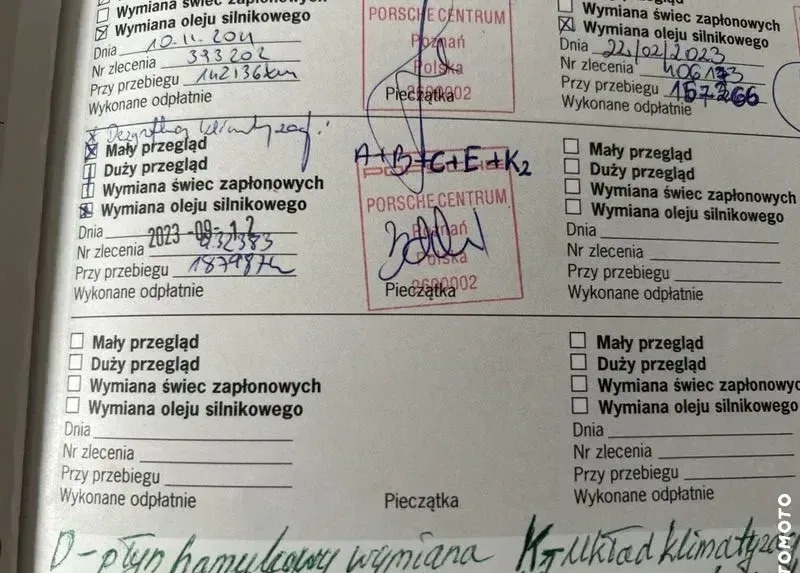 Wymiana świec zapłonowych
Wymiana oleju silnikowego
Dnia 10.11.201
Nr zlecenia 393202
Przy przebiegu 142136km
Wykonane odpłatnie
PORSCHE CENTRUM
Poznań
Polska
2600002
Pieczątka
Wymiana świec zapłonowych
Wymiana oleju silnikowego
Dnia 22/02/2023
Nr zlecenia 406173
Przy przebiegu
Wykonane odpłatnie
Mały przegląd
Duży przegląd
Wymiana świec zapłonowych
Wymiana oleju silnikowego
Dnia 2023 -09- 12
Nr zlecenia 432383
Przy przebiegu
Wykonane odpłatnie
A+B+C+E+K2
PORSCHE CENTRUM
Poznań
Polska
2600002
Pieczątka
Mały przegląd
Duży przegląd
Wymiana świec zapłonowych
Wymiana oleju silnikowego
Dnia
Nr zlecenia
Przy przebiegu
Wykonane odpłatnie
Mały przegląd
Duży przegląd
Wymiana świec zapłonowych
Wymiana oleju silnikowego
Dnia
Nr zlecenia
Przy przebiegu
Wykonane odpłatnie
Pieczątka
Mały przegląd
Duży przegląd
Wymiana świec zapłonowyc
Wymiana oleju silnikowego
Dnia
Nr zlecenia
Przy przebiegu
Wykonane odpłatnie
D-płyn hamulcowy wymiana K układ klimatyzacj
OTOMOTO